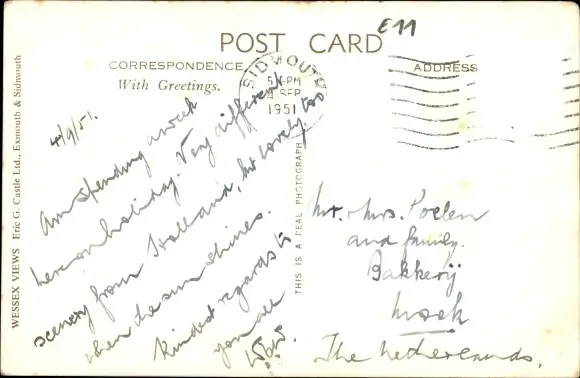 E11
POST CARD
CORRESPONDENCE
ADDRESS
With Greetings.
SIDMOUTH
5 - PM
4 SEP
1951
4/9/51.
Am spending a week
here on holiday. Very different
scenery from Holland, but lovely, too,
when the sun shines.
Kindest regards to
you all
Mr. & Mrs. Poelen
and family.
Bakkerij
Mook
The Netherlands.
THIS IS A REAL PHOTOGRAPH
WESSEX VIEWS Eric G. Castle Ltd., Exmouth & Sidmouth